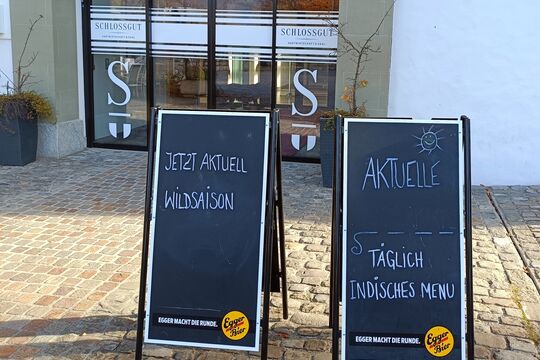 SCHLOSSGUT
SCHLOSSGUT
S
S
JETZT AKTUELL
WILDSAISON
EGGER MACHT DIE RUNDE.
Egger
Bier
AKTUELLE
TÄGLICH
INDISCHES MENU
EGGER MACHT DIE RUNDE.
Egger
Bier